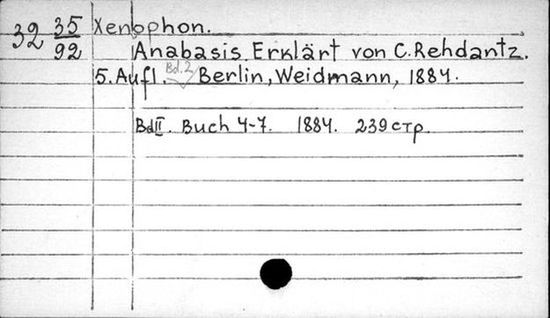 32 35/92 Xenophon.
Anabasis Erklärt von C. Rehdantz.
5. Aufl. Bd.2 Berlin, Weidmann, 1884.
Bd II. Buch 4-7. 1884. 239 стр.